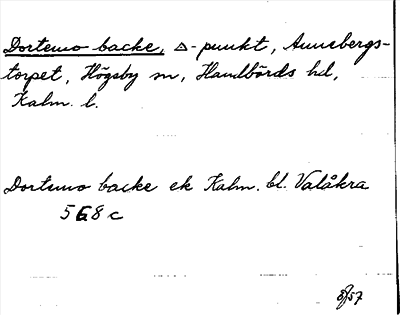 Dortemo backe, △-punkt, Annebergs-
torpet, Högsby sn, Handbörds hd,
Kalm. l.
Dortemo backe ek Kalm. bl. Valåkra
5G8c